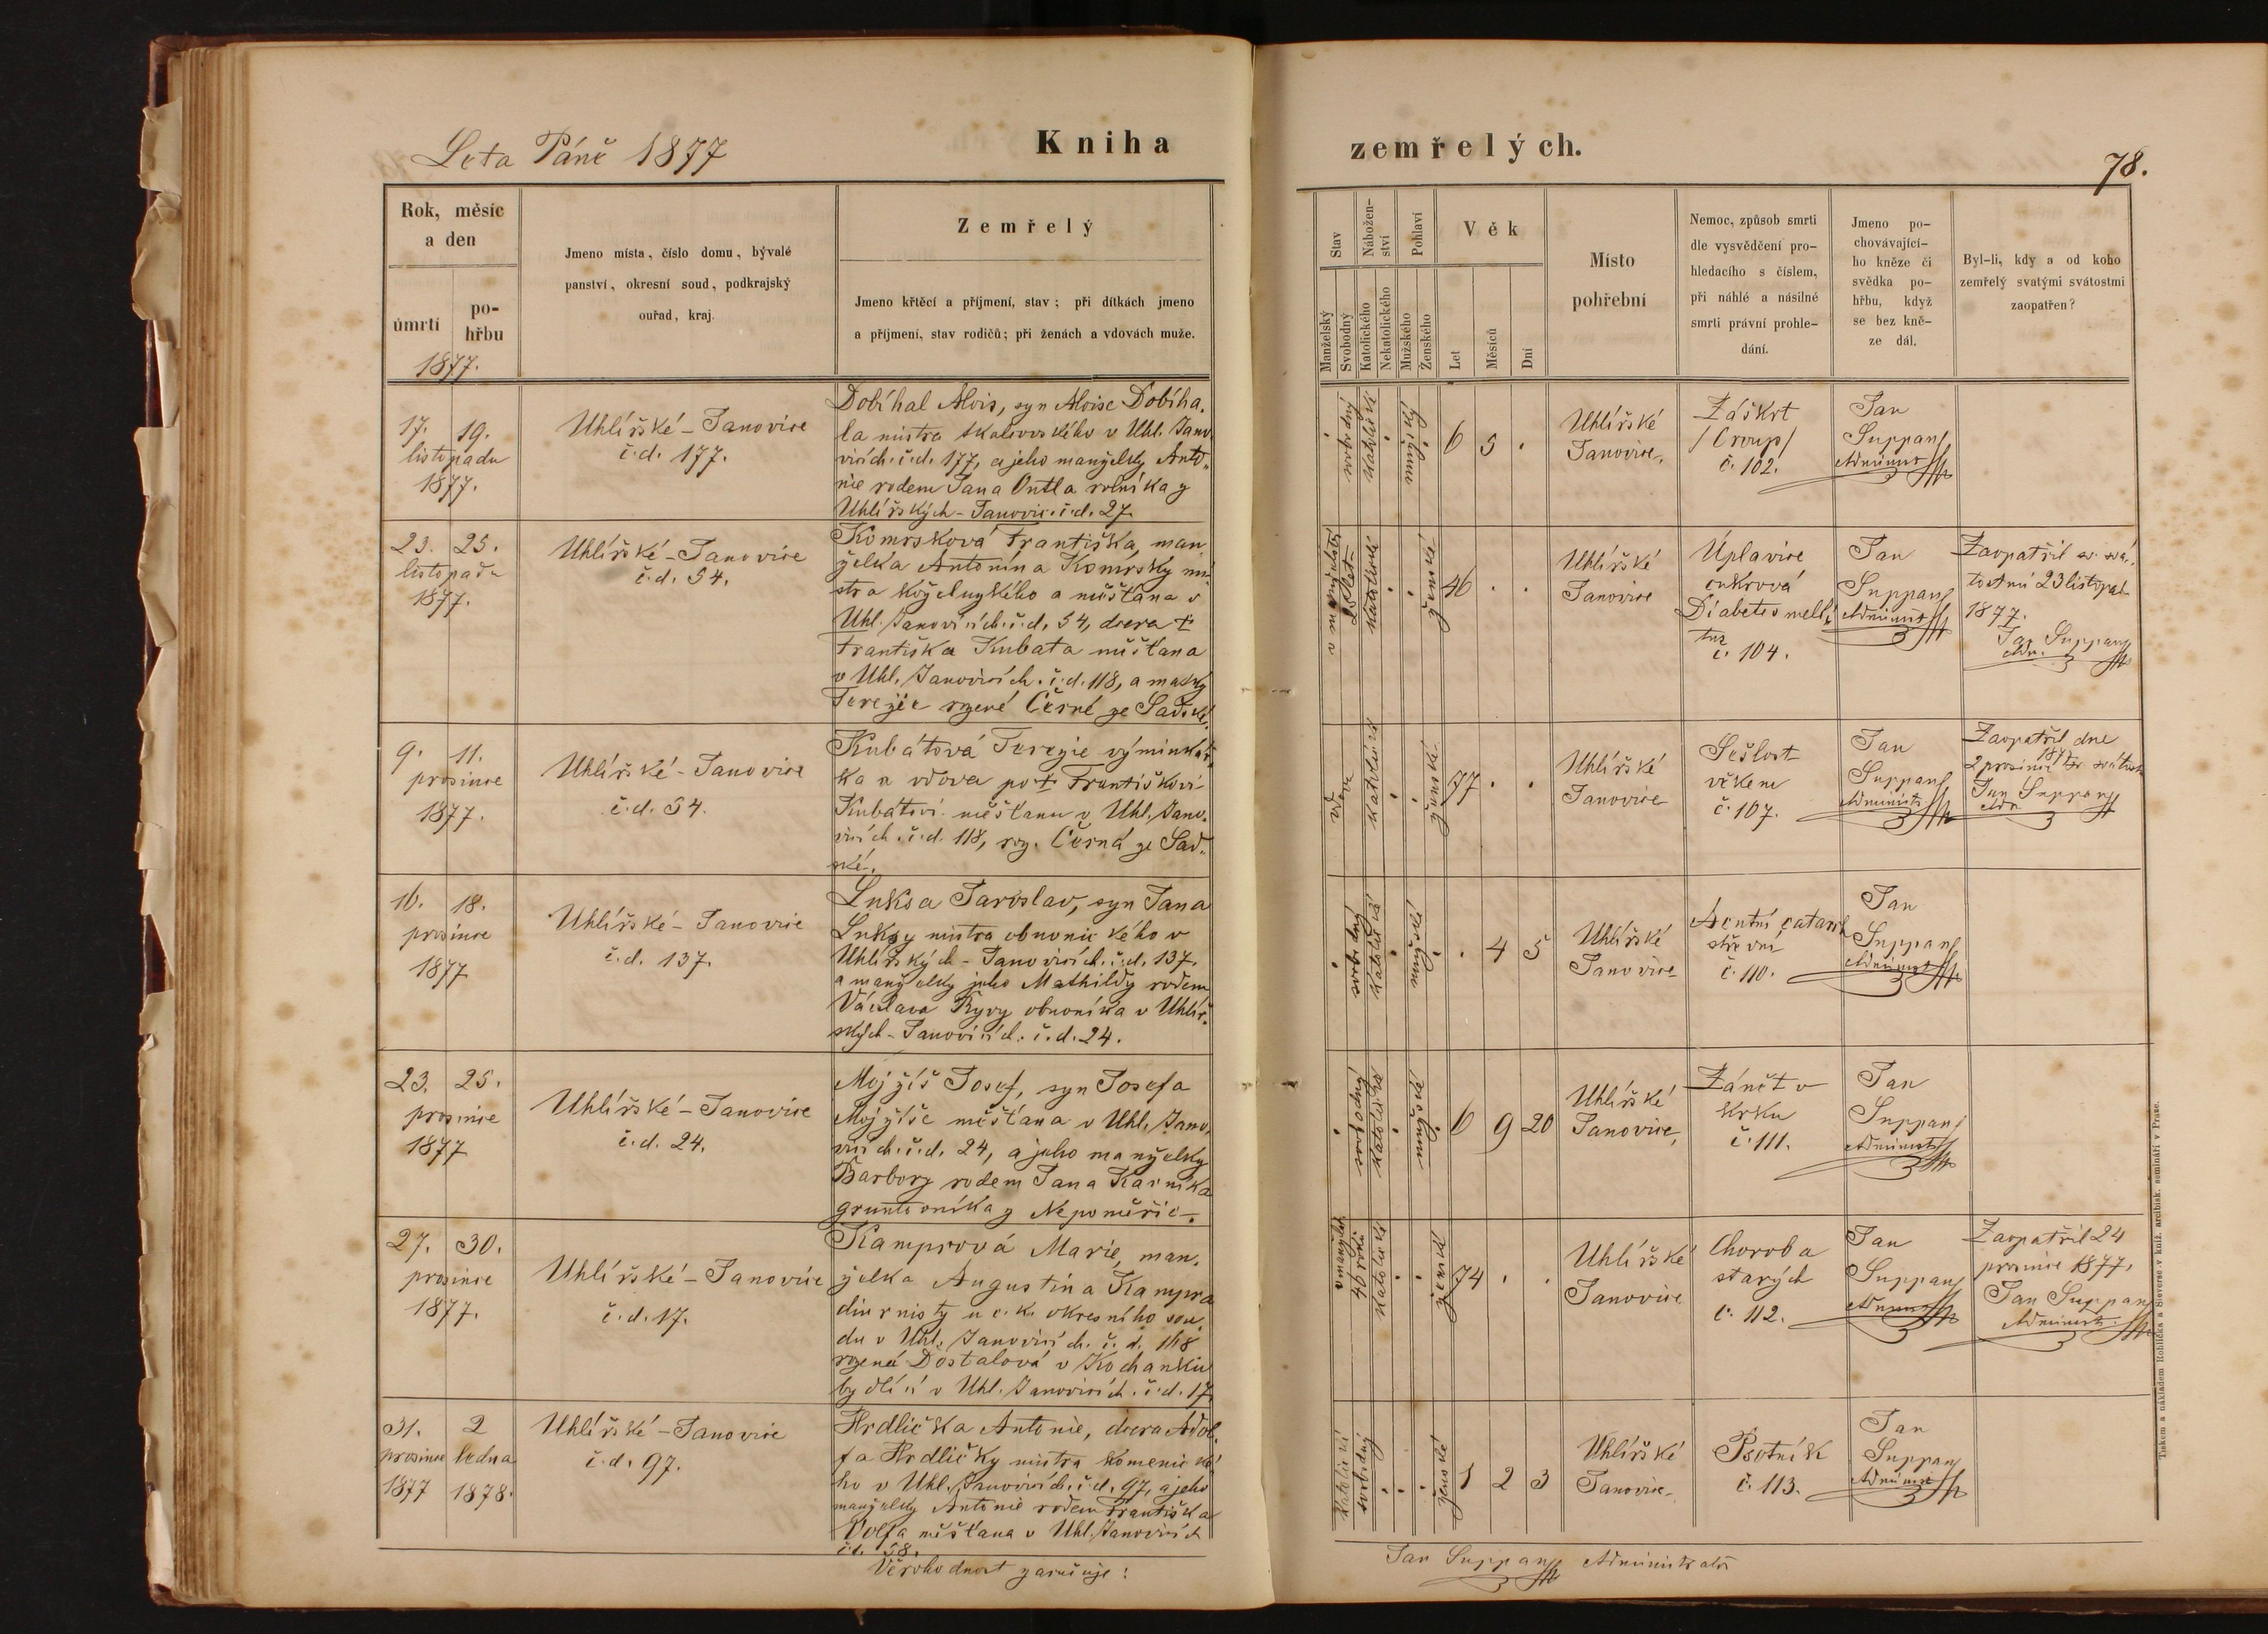 Leta Páně 1877
Kniha
zemřelých.
78.
Rok, měsíc
a den
úmrtí
po-
hřbu
1877.
Jmeno místa, číslo domu, bývalé
panství, okresní soud, podkrajský
ouřad, kraj.
Zemřelý
Jmeno křtěcí a příjmení, stav; při dítkách jmeno
a příjmení, stav rodičů; při ženách a vdovách muže.
Stav
Manželský
Svobodný
Nábožen-
ství
Katolického
Nekatolického
Pohlaví
Mužského
Ženského
Věk
Let
Měsíců
Dní
Místo
pohřební
Nemoc, způsob smrti
dle vysvědčení pro-
hledacího s číslem,
při náhlé a násilné
smrti právní prohle-
dání.
Jmeno po-
chovávající-
ho kněze či
svědka po-
hřbu, když
se bez kně-
ze dál.
Byl-li, kdy a od koho
zemřelý svatými svátostmi
zaopatřen?
17. 19.
listopadu
1877.
Uhlířské-Janovice
č.d. 177.
Dobíhal Alois, syn Aloise Dobíha,
la mistra v Uhl. Jano
vicích. č.d. 177, a jeho manželky Anto„
nie rodem Jana Ontla rolníka z
Uhlířských-Janovic. č.d. 27.
svobodný
katolické
mužské
6 5 .
Uhlířské
Janovice,
Záškrt
/Croup/
č. 102.
Jan
Suppan
Administ
23. 25.
listopadu
1877.
Uhlířské-Janovice
č.d. 54.
Komrsková Františka, man
želka Antonína Komrsky mi
stra koželužského a měšťana v
Uhl. Janovicích. č.d. 54, dcera †
Františka Kubata měšťana
v Uhl. Janovicích. č.d. 118, a matky
Terezie rozené Černé ze Sadské.
v manželství
let
katolické
ženské
46 . .
Uhlířské
Janovice
Úplavice
cukrová
Diabetes melli,
tus
č. 104.
Jan
Suppan
Administ
Zaopatřil sv. svá,
tostmi 23 listopad
1877.
Jan Suppan
Adm.
9. 11.
prosince
1877.
Uhlířské-Janovice
č.d. 54.
Kubátová Terezie výminkář,
ka a vdova po † Františkovi
Kubátovi měšťanu v Uhl. Jano,
vicích. č.d. 118, roz. Černá ze Sad„
ské.
vdova
katolické
ženské
77 . .
Uhlířské
Janovice
Sešlost
věkem
č. 107.
Jan
Suppan
Administ
Zaopatřil dne
2 prosince 1877 sv. svátost
Jan Suppan
Adm
16. 18.
prosince
1877
Uhlířské-Janovice
č.d. 137.
Luksa Jaroslav, syn Jana
Luksy mistra obuvnického v
Uhlířských-Janovicích. č.d. 137.
a manželky jeho Mathildy rodem
Václava Ryvy obuvníka v Uhlíř,
ských-Janovicích. č.d. 24.
svobodný
katolické
mužské
. 4 5
Uhlířské
Janovice
Acutní catarrh
střevní
č. 110.
Jan
Suppan
Administ
23. 25.
prosince
1877
Uhlířské-Janovice
č.d. 24.
Mojžíš Josef, syn Josefa
Mojžíše měšťana v Uhl. Jano,
vicích. č.d. 24, a jeho manželky
Barbory rodem Jana Karníka
gruntovníka z Nepoměřic.
svobodný
katolické
mužské
6 9 20
Uhlířské
Janovice,
Zánět v
krku
č. 111.
Jan
Suppan
Administ
27. 30.
prosince
1877.
Uhlířské-Janovice
č.d. 17.
Kamprová Marie, man,
želka Augustina Kampra
diurnisty u c.k. okresního sou,
du v Uhl. Janovicích. č.d. 168
rozená Dostalová v Kochánku
bydlící v Uhl. Janovicích. č.d. 17.
v manžel
46 roků
katolické
ženské
74 . .
Uhlířské
Janovice
Choroba
starých
č. 112.
Jan
Suppan
Administ
Zaopatřil 24
prosince 1877.
Jan Suppan
Administ.
31. 2
prosince ledna
1877 1878.
Uhlířské-Janovice
č.d. 97.
Hrdlička Antonie, dcera Adol,
fa Hrdličky mistra kominické
ho v Uhl. Janovicích. č.d. 97, a jeho
manželky Antonie rodem Františka
Volfa měšťana v Uhl. Janovicích
č.d. 58.
katolické
svobodný
ženské
1 2 3
Uhlířské
Janovice
Psotník
č. 113.
Jan
Suppan
Administ
Věrohodnost zaručuje:
Jan Suppan Administrator
Tiskem a nákladem Rohlíčka a Sieverse v kníž. arcibisk. semináři v Praze.